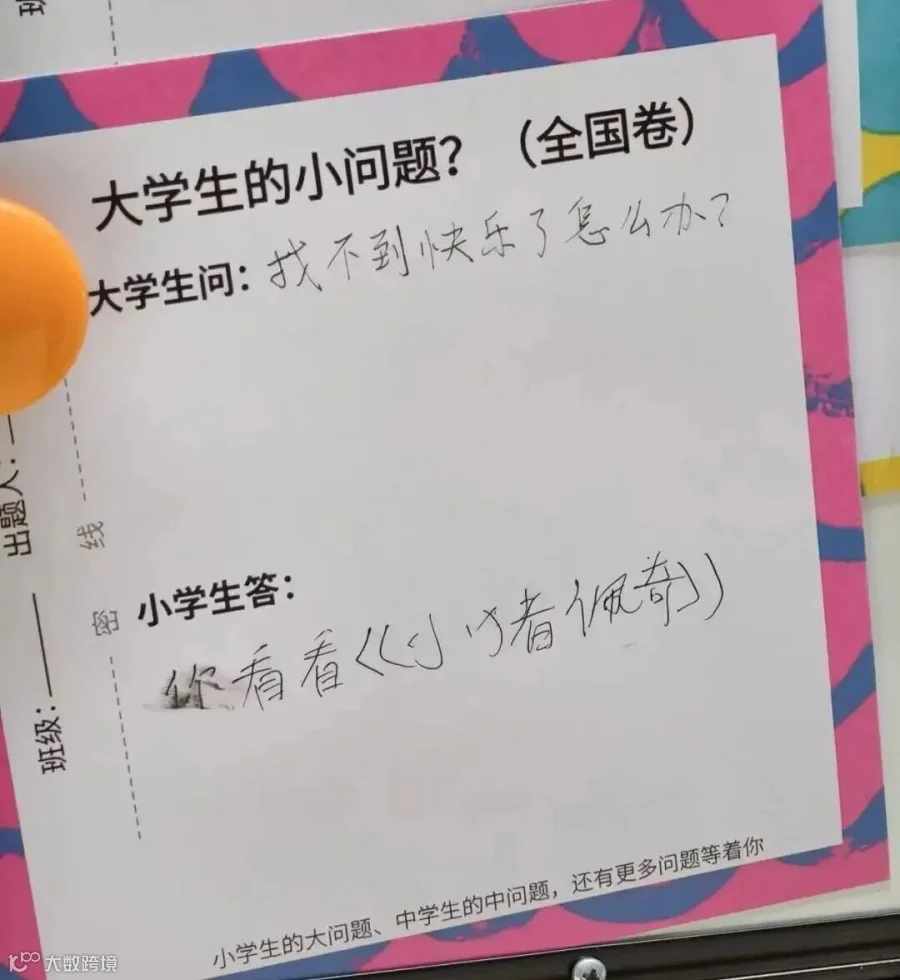 大学生的小问题？（全国卷）
大学生问：找不到快乐了怎么办？
出题人：
线
密
班级：
小学生答：
你看看《小猪佩奇》
小学生的大问题、中学生的中问题，还有更多问题等着你
大数跨境